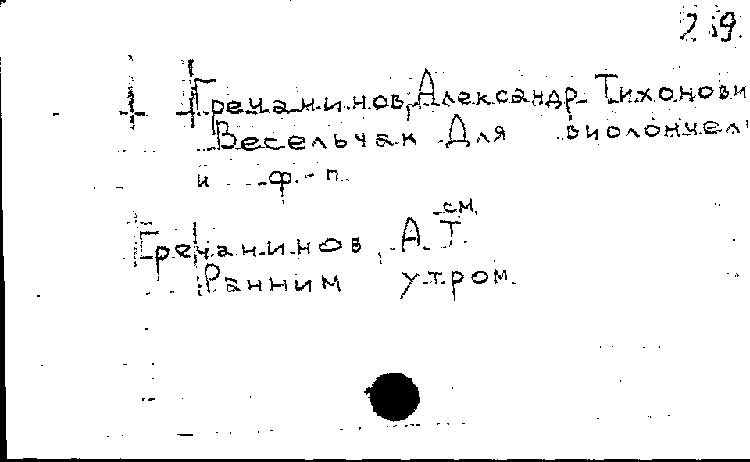 Гречанинов, Александр Тихонови
Весельчак Для виолончел
и ф.-п.
см.
Гречанинов, А. Т.
Ранним утром.